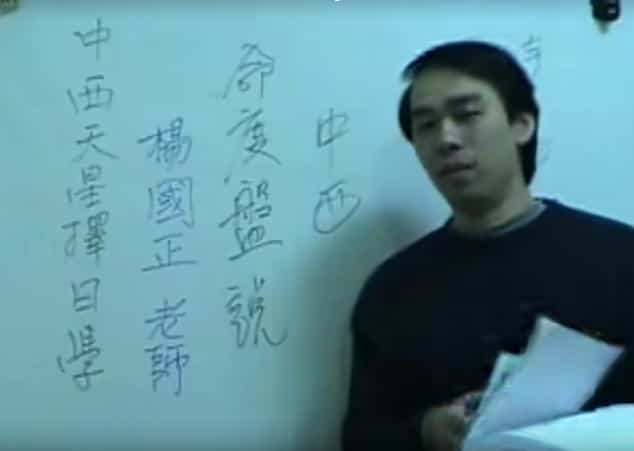 中西
命度盤說
楊國正 老師
中西天星擇日學